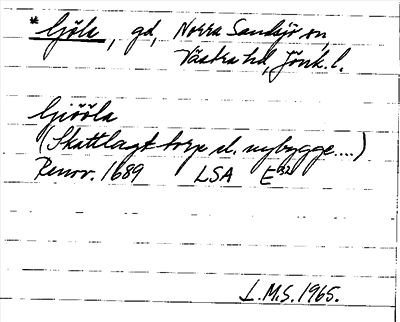 *Gjöla, gd, Norra Sandsjö sn,
Västra hd, Jönk. l.
Giööla
(Skattlagt torp el. nybygge....)
Renov. 1689 LSA E32
L.M.S. 1965.